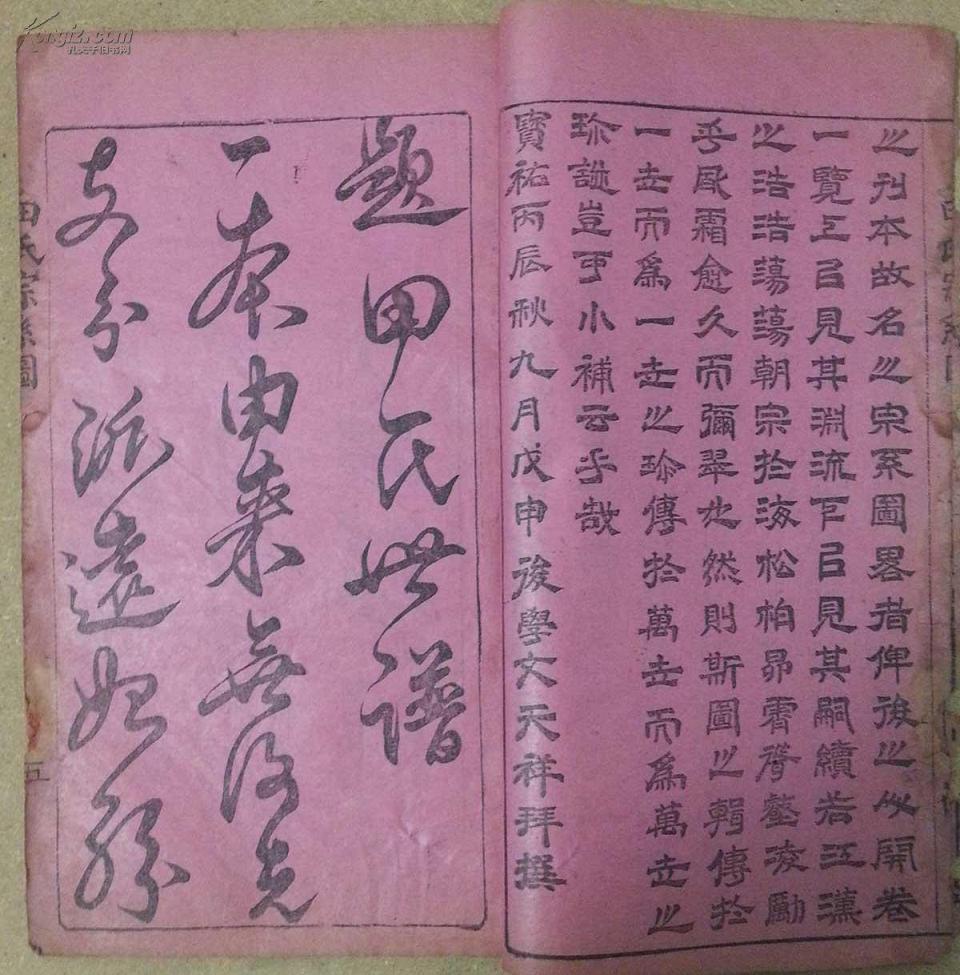 之刊本故名之宗系圖畧者俾後之開卷
一覽上㠯見其淵流下㠯見其嗣續若江漢
之浩浩蕩蕩朝宗於海松柏昂霄聳壑凌勵
乎風霜愈久而彌翠也然則斯圖之輯傳於
一世而爲一世之珍傳於萬世而爲萬世之
珍豈可小補云乎哉
寶祐丙辰秋九月戊申後學文天祥拜撰
題田氏世譜
一本由來無後先
支分派遠始紛
田氏宗系圖
五
Kongfz.com
孔夫子旧书网